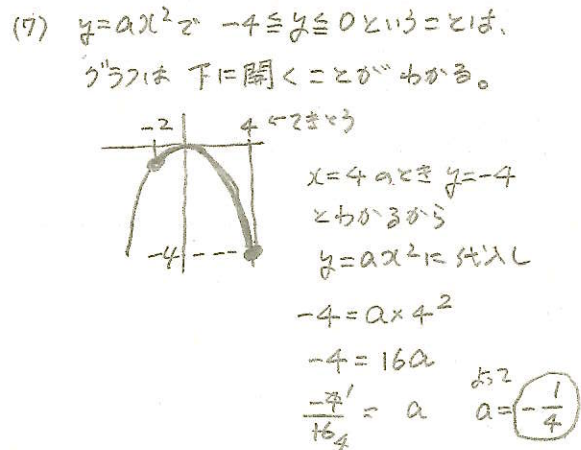 (7) y=ax²で -4≦y≦0ということは、
グラフは 下に開くことがわかる。
-2 4 ←てきとう
x=4のとき y=-4
とわかるから
-4
y=ax²に代入し
-4=a×4²
-4=16a
よって
-4 1/16 4 = a a=-1/4